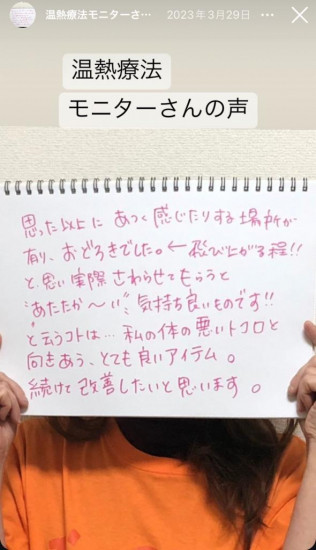 温熱療法モニターさ… 2023年3月29日
温熱療法
モニターさんの声
思った以上に あつく感じたりする場所が
有り、おどろきでした。← 飛び上がる程!!
と、思い実際 さわらせてもらうと
"あたたか～い" 気持ち良いものです!!
と云うコトは… 私の体の悪いトコロと
向きあう、とても良いアイテム。
続けて改善したいと思います。